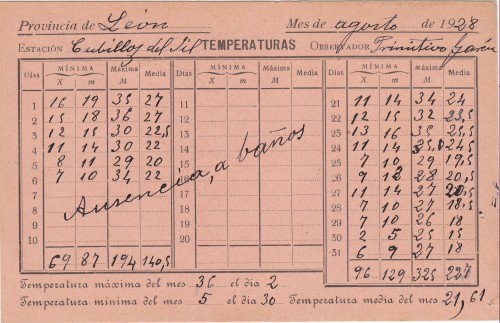 Provincia de León Mes de agosto de 1928
ESTACIÓN Cubillos del Sil TEMPERATURAS OBSERVADOR Primitivo García
Días MÍNIMA Máxima Media Días MÍNIMA Máxima Media Días MÍNIMA Máxima Media
X m M X m M X m M
1 16 19 35 27 11 21 11 14 34 24
2 15 18 36 27 12 22 12 15 32 23,5
3 12 15 30 22,5 13 23 13 16 35 25,5
4 11 14 30 22 14 24 11 14 25,0 24,5
5 8 11 29 20 15 25 7 10 29 19,5
6 7 10 34 22 16 26 9 12 28 20,5
7 17 27 11 14 27 20,5
8 18 28 7 10 27 18,5
9 19 29 7 10 26 18
10 20 30 2 5 25 15
31 6 9 27 18
Ausencia, a baños
69 87 194 140,5 96 129 325 227
Temperatura máxima del mes 36 el día 2
Temperatura mínima del mes 5 el día 30 Temperatura media del mes 21,61